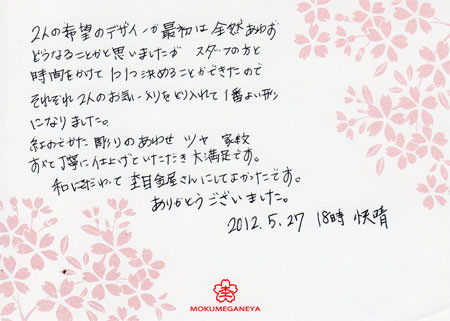 2人の希望のデザインが最初は全然あわず
どうなることかと思いましたが スタッフの方と
時間をかけて1つ1つ決めることができたので
それぞれ2人のお気に入りをとり入れて1番よい形
になりました。
紅のでかた 彫りのあわせ ツヤ 家紋
すべて丁寧に仕上げていただき大満足です。
和にこだわって 杢目金屋さんにしてよかったです。
ありがとうございました。
2012.5.27 18時 快晴
MOKUMEGANEYA